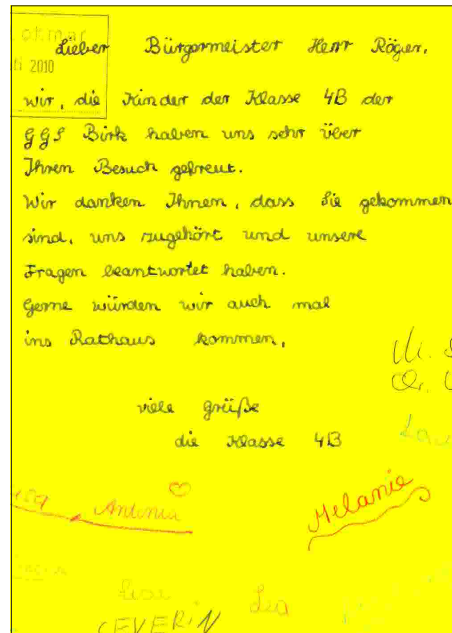 ohmar
2010
Lieber Bürgermeister Herr Röger,
wir, die Kinder der Klasse 4B der
GGS Birk haben uns sehr über
Ihren Besuch gefreut.
Wir danken Ihnen, dass Sie gekommen
sind, uns zugehört und unsere
Fragen beantwortet haben.
Gerne würden wir auch mal
ins Rathaus kommen.
viele grüße
die Klasse 4B
Antonia
Melanie
Lea
SEVERIN